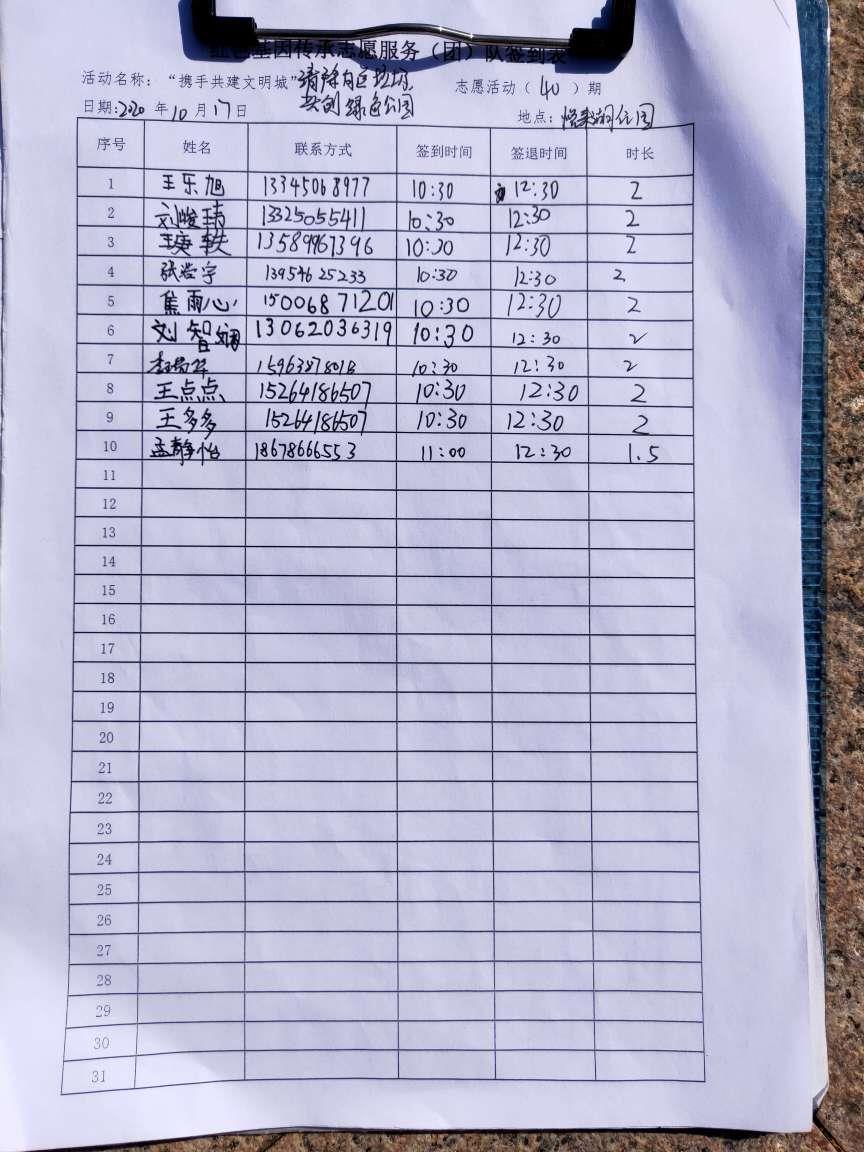 红色基因传承志愿服务（团）队签到表
活动名称：“携手共建文明城”清除白色垃圾 志愿活动（40）期
共创绿色公园
日期:2020年10月17日 地点：悦来湖公园
序号 姓名 联系方式 签到时间 签退时间 时长
1 王乐旭 13345068977 10:30 12:30 2
2 刘峻玮 13325055411 10:30 12:30 2
3 王庚轶 13589967396 10:30 12:30 2
4 张浩宇 13954625233 10:30 12:30 2
5 焦雨心 15006871201 10:30 12:30 2
6 刘智娴 13062036319 10:30 12:30 2
7 10:30 12:30 2
8 王点点 15264186507 10:30 12:30 2
9 王多多 15264186507 10:30 12:30 2
10 孟静怡 18678666553 11:00 12:30 1.5
11
12
13
14
15
16
17
18
19
20
21
22
23
24
25
26
27
28
29
30
31